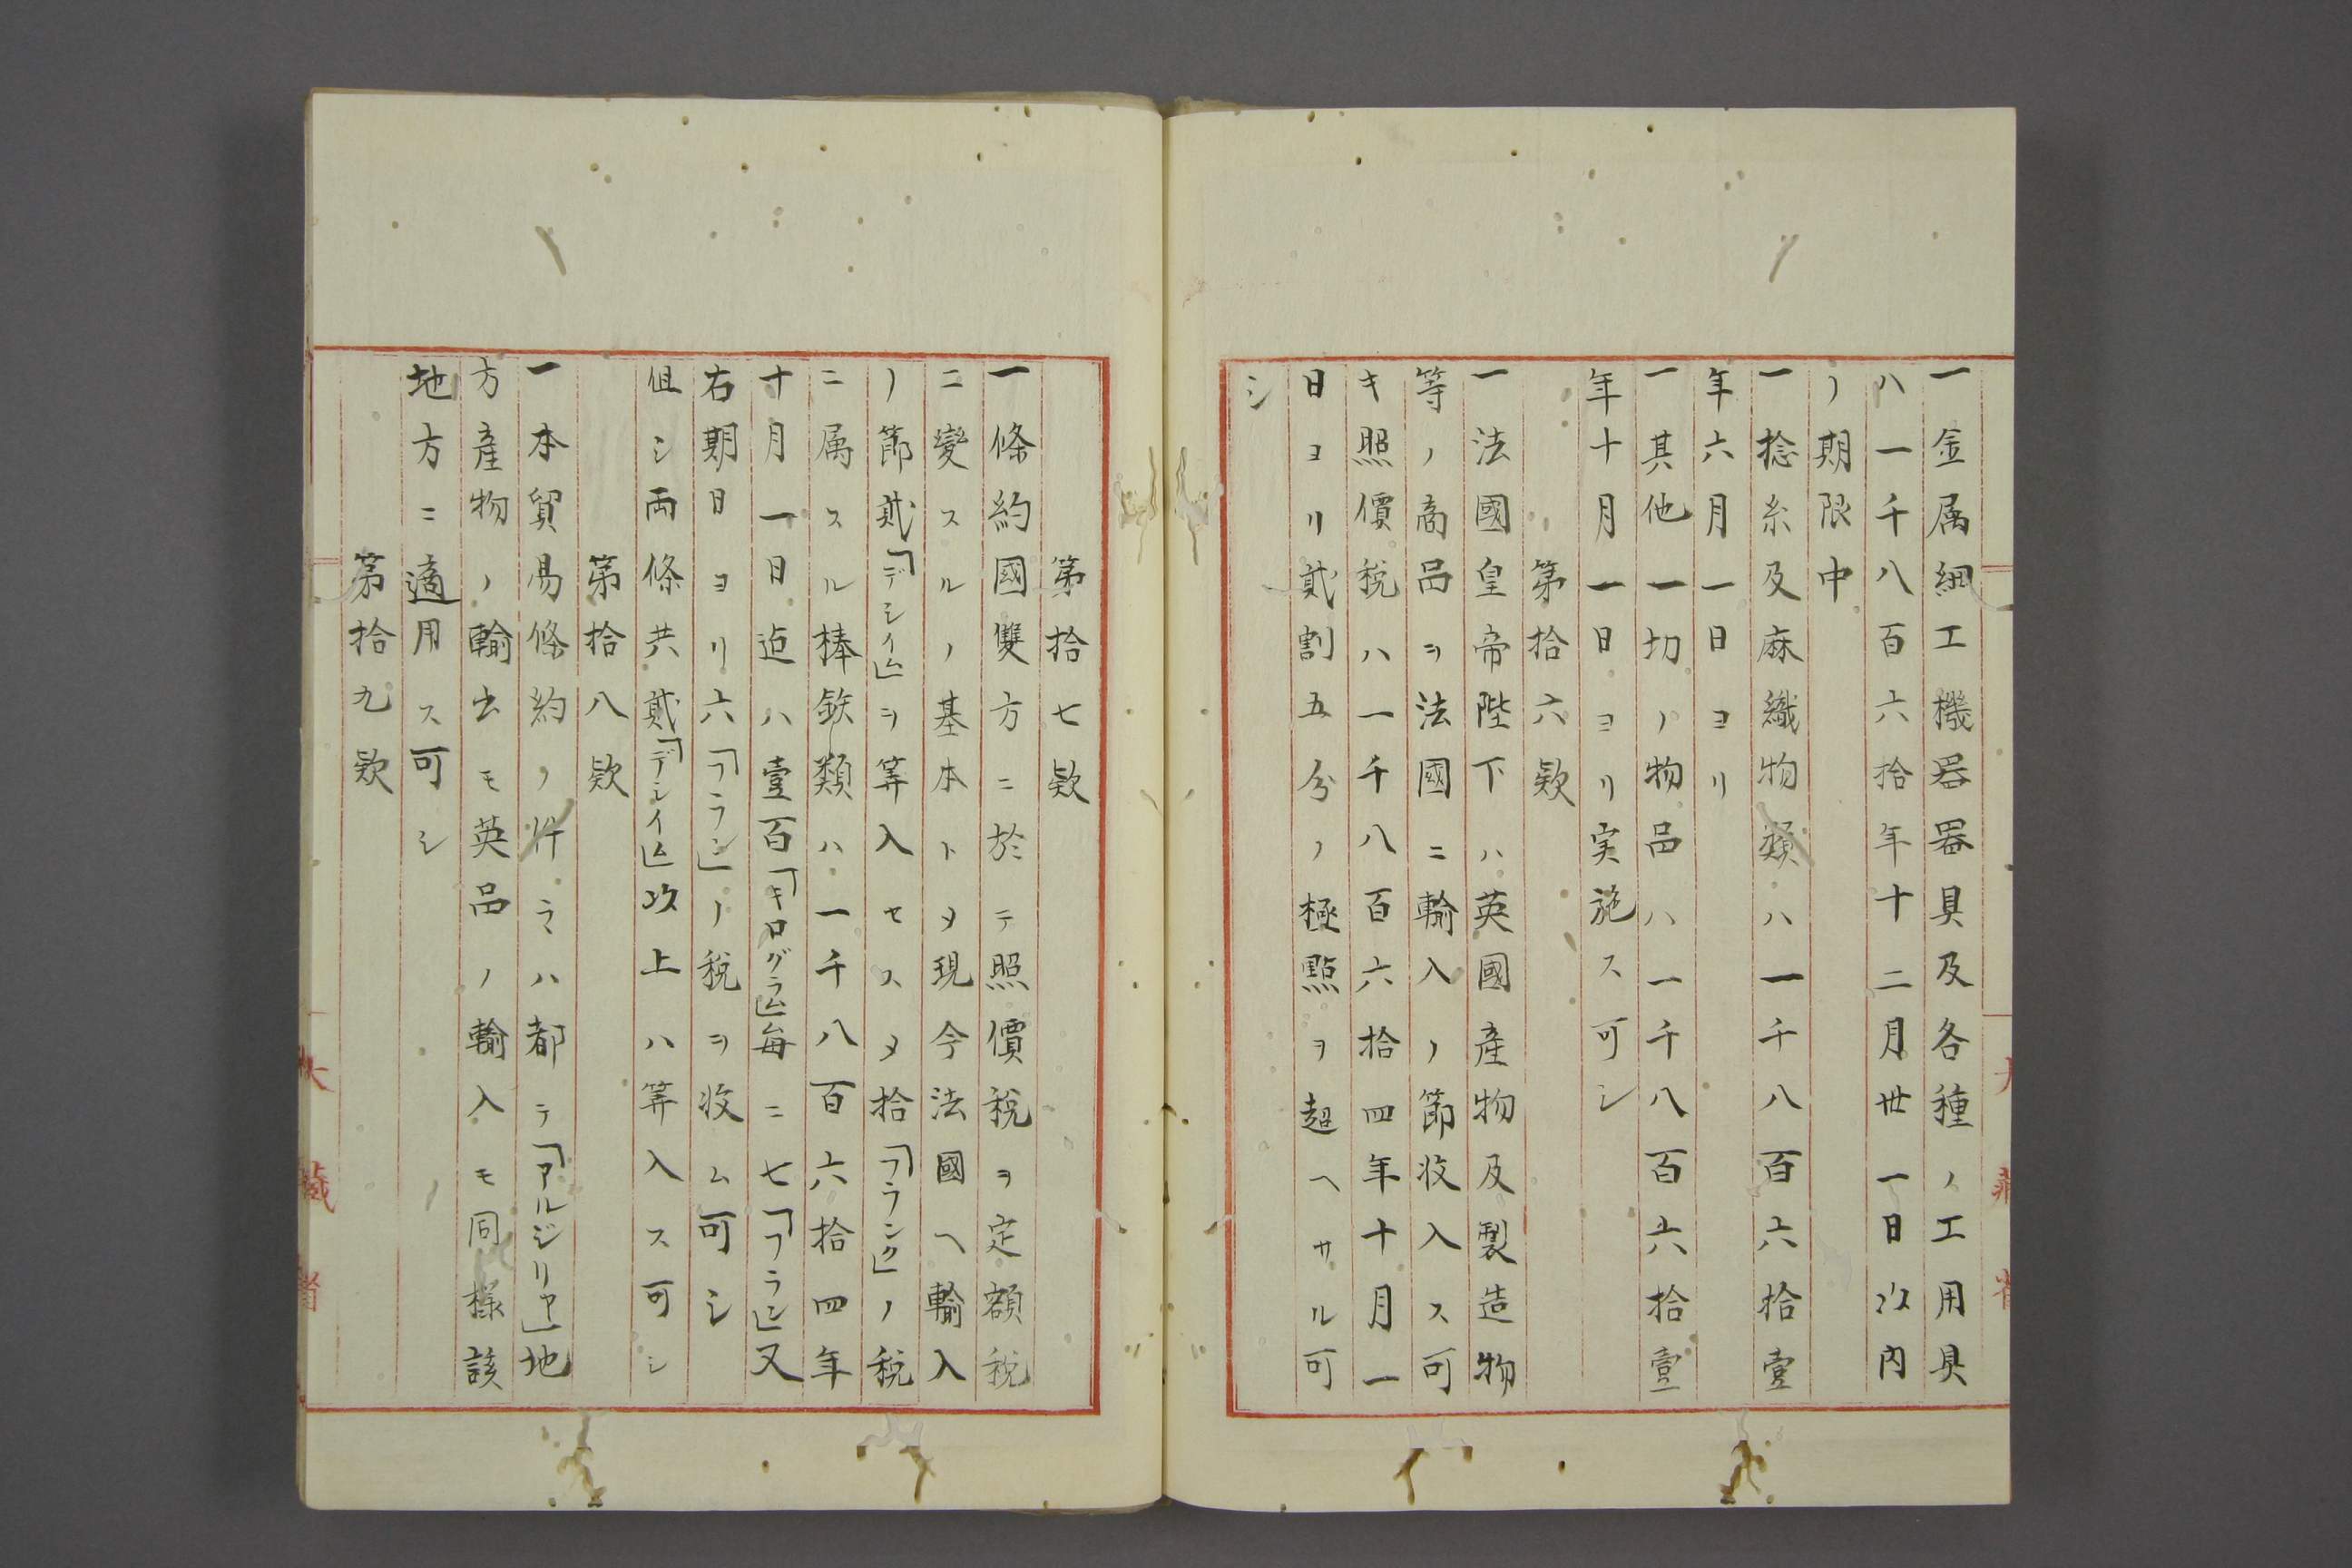 一金属細工機器器具及各種ノ工用具
ハ一千八百六拾年十二月丗一日以内
ノ期限中
一捻糸及麻織物類ハ一千八百六拾壹
年六月一日ヨリ
一其他一切ノ物品ハ一千八百六拾壹
年十月一日ヨリ実施ス可シ
第拾六欵
一法國皇帝陛下ハ英國産物及製造物
等ノ商品ヲ法國ニ輸入ノ節收入ス可
キ照價税ハ一千八百六拾四年十月一
日ヨリ貳割五分ノ極點ヲ超ヘサル可
シ
第拾七欵
一條約國雙方ニ於テ照價税ヲ定額税
ニ變スルノ基本トメ現今法國ヘ輸入
ノ節貳「デシイム」ヲ筭入セスメ拾「フランク」ノ税
ニ属スル棒鉄類ハ一千八百六拾四年
十月一日迠ハ壹百「キログラム」毎ニ七「フラン」又
右期日ヨリ六「フラン」ノ税ヲ收ム可シ
但シ両條共貳「デシイム」以上ハ筭入ス可シ
第拾八欵
一本貿易條約ノ件ランハ都テ「アルジリヤ」地
方産物ノ輸出モ英品ノ輸入モ同様該
地方ニ適用ス可シ
第拾九欵
大藏省